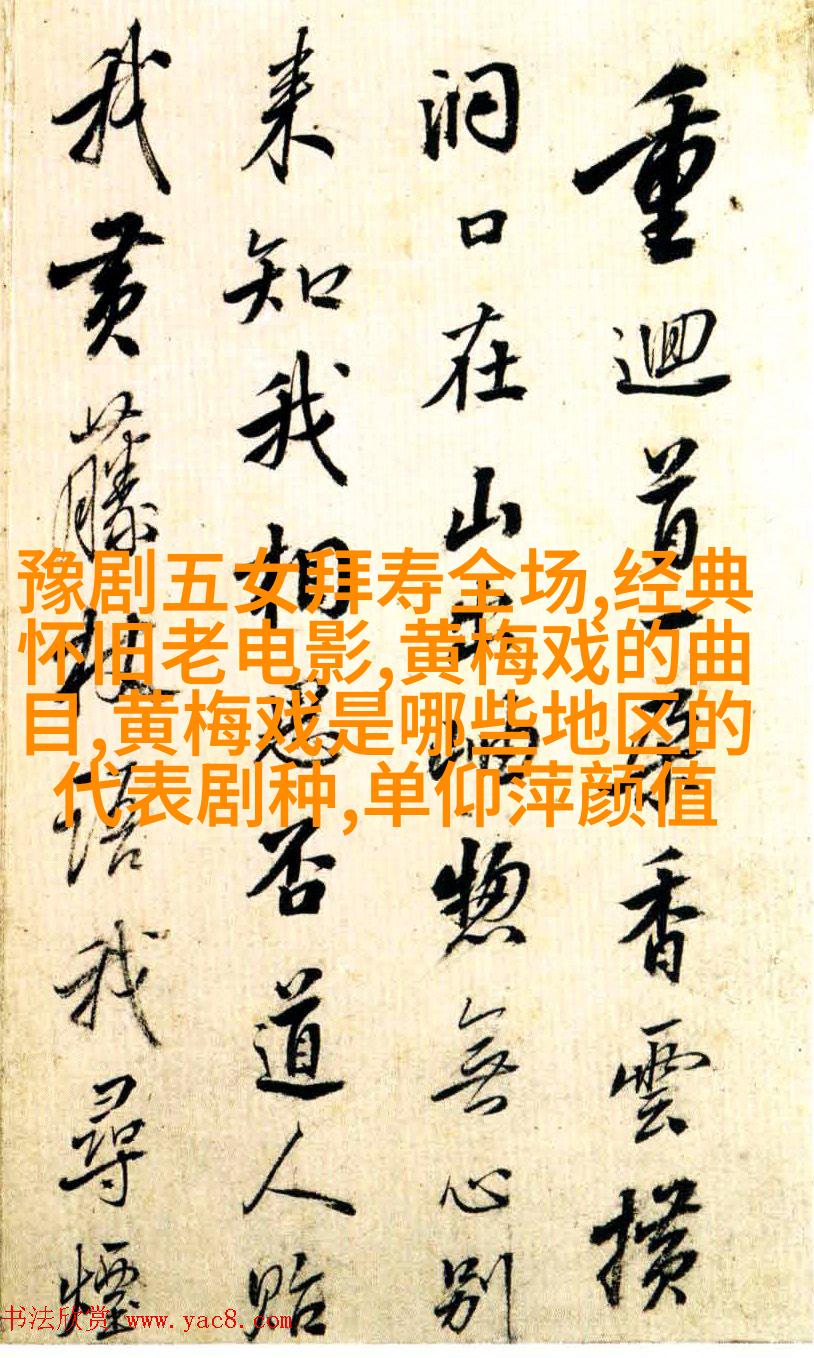 重迴首一朵香雲擁
洞口在山無惱無心別
来知我相思否道人貽
我黄藤杖語我尋煙
豫剧五女拜寿全场,经典
怀旧老电影,黄梅戏的曲
目,黄梅戏是哪些地区的
代表剧种,单仰萍颜值
书法欣赏 www.yac8.com